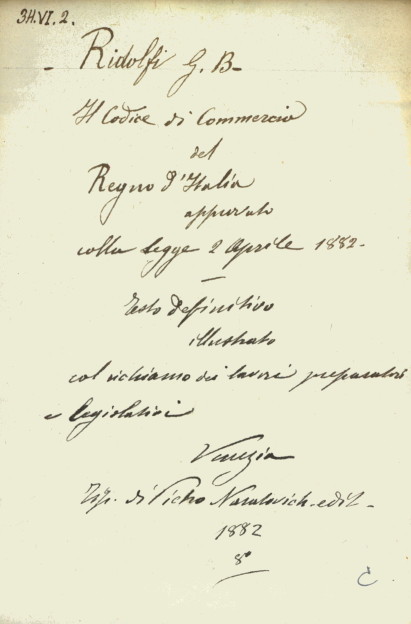 34.VI.2.
Ridolfi G. B.
Il Codice di Commercio
del
Regno d'Italia
approvato
colla legge 2 Aprile 1882 -
Testo definitivo
illustrato
col richiamo dei lavori preparatori
e legislativi
Venezia
Tip. di Pietro Naratovich - edit -
1882
8°
C